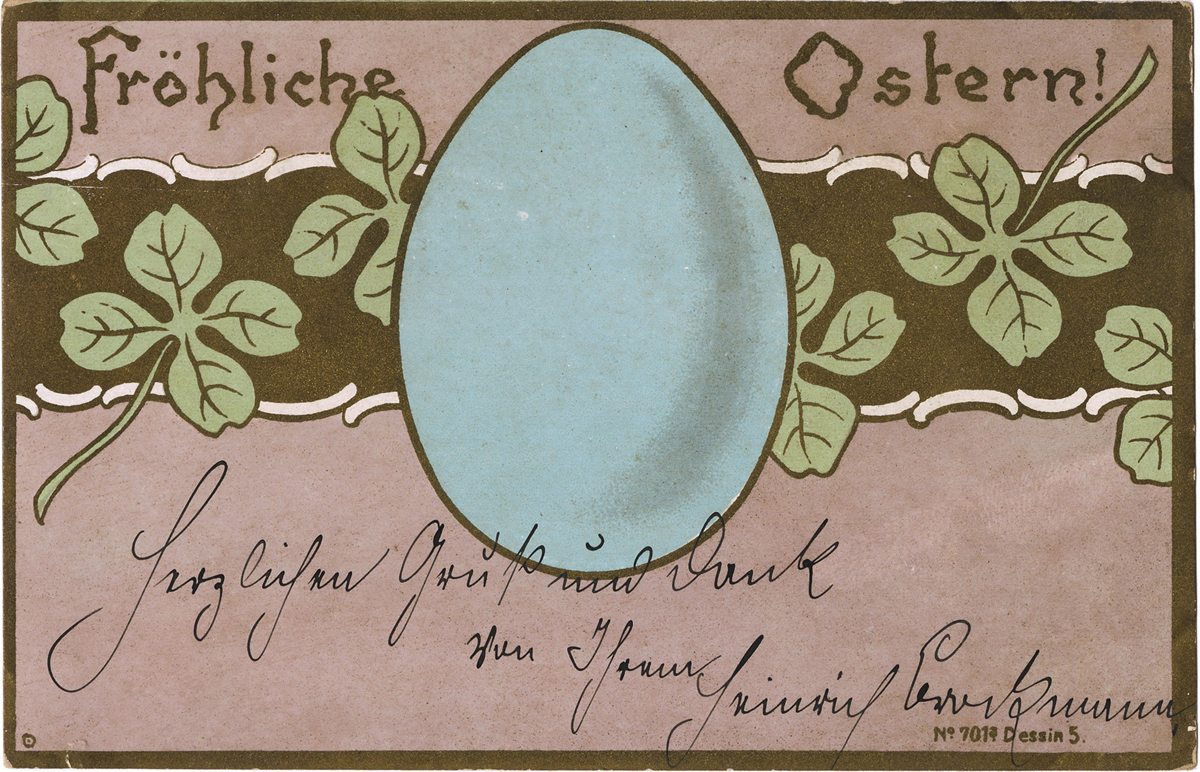 Fröhliche Ostern!
Herzlichen Gruß und Dank
von Ihrem
Heinrich Brockmann
Dessin 5.